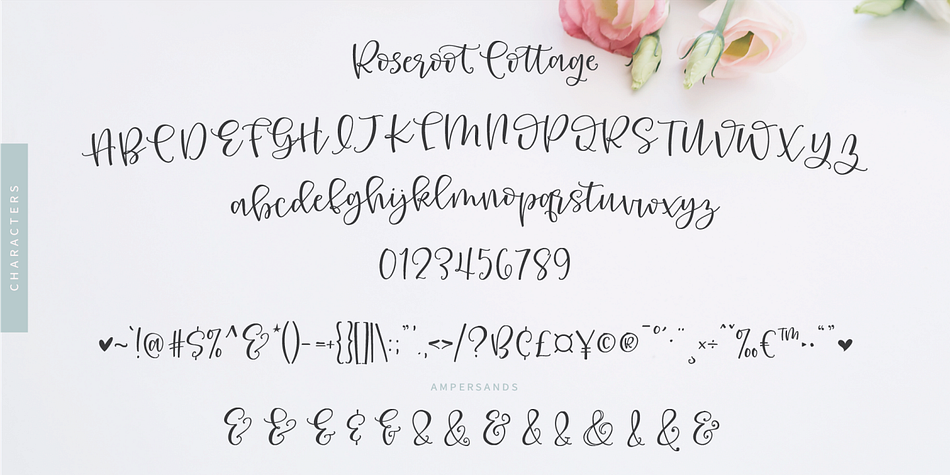 Roseroot Cottage
ABCDEFGHIJKLMNOPQRSTUVWXYZ
abcdefghijklmnopqrstuvwxyz
0123456789
♥~`!@#$%^&*()-=+{}[]|\:;"'.,<>/?B¢£¤¥©®¯°´·¨¸×÷ˆˇ‰€™··“”♥
AMPERSANDS
& & & & & & & & & & & & & &
CHARACTERS